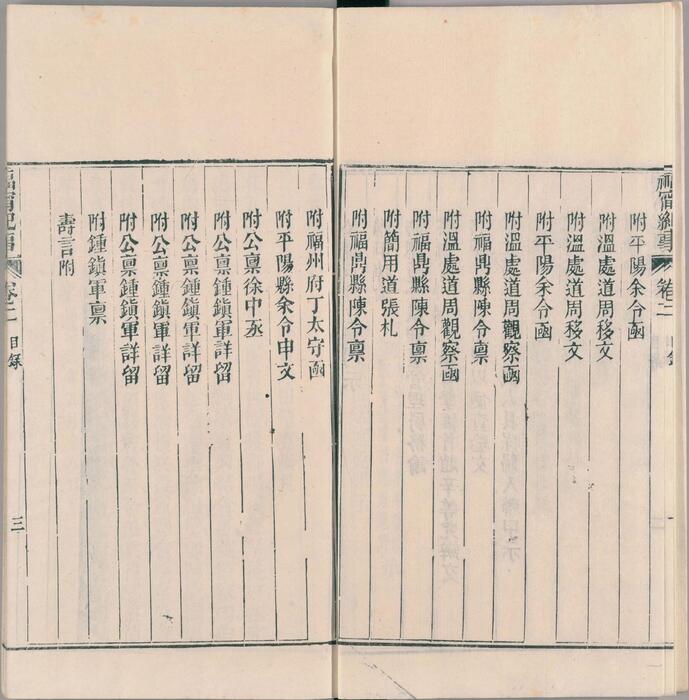 福甯紀事 卷二 目錄
附平陽余令函
附溫處道周移文
附溫處道周移文
附平陽余令函
附溫處道周觀察函
附福鼎縣陳令稟
附溫處道周觀察函
附福鼎縣陳令稟
附簡用道張札
附福鼎縣陳令稟
附福州府丁太守函
附平陽縣余令申文
附公稟徐中丞
附公稟鍾鎮軍詳留
附公稟鍾鎮軍詳留
附公稟鍾鎮軍詳留
附公稟鍾鎮軍詳留
附鍾鎮軍稟
壽言附
福甯紀事 卷二 目錄 三